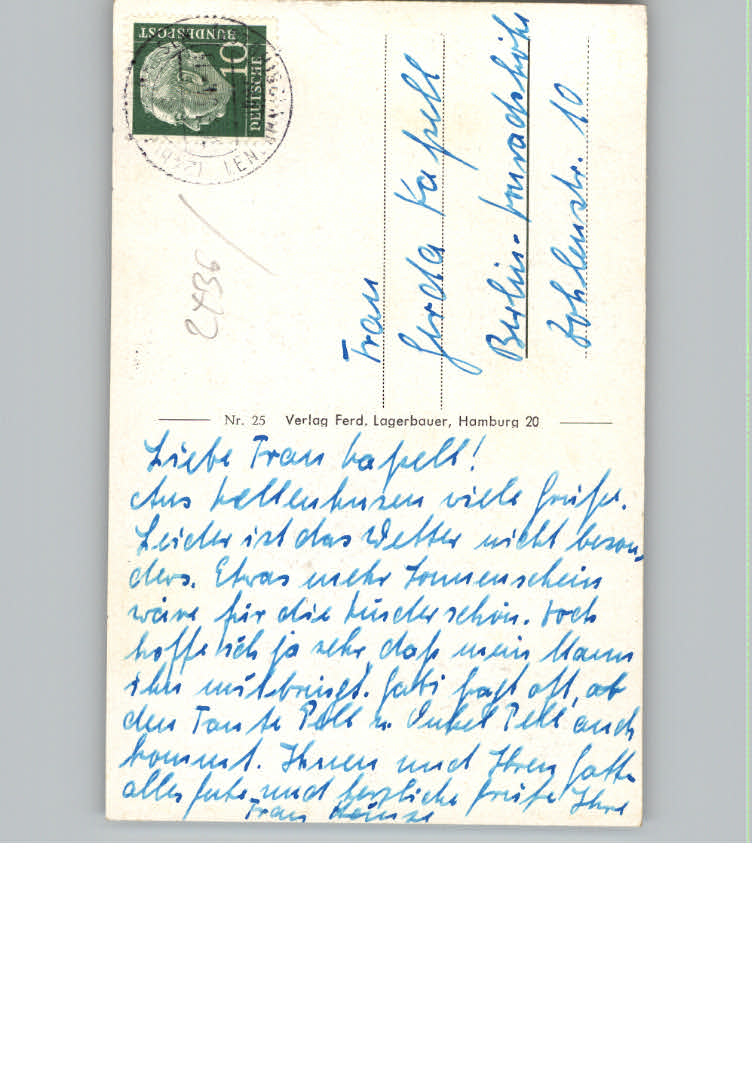 DEUTSCHE
BUNDESPOST
10
LENSAHN
2436
Frau
Gerda Kapell
Berlin-
10
Nr. 25 Verlag Ferd. Lagerbauer, Hamburg 20
Liebe Frau Kapell!
Aus Kellenhusen viele Grüße.
Leider ist das Wetter nicht beson-
ders. Etwas mehr Sonnenschein
wäre für die Kinder schön. Doch
hoffe ich ja sehr, daß mein Mann
ihn mitbringt. Gabi fragt oft, ob
den Tante Pell u. Onkel Pell auch
kommt. Ihnen und Ihren Gatte
alles gute und herzliche Grüße Ihre
Frau Heinze